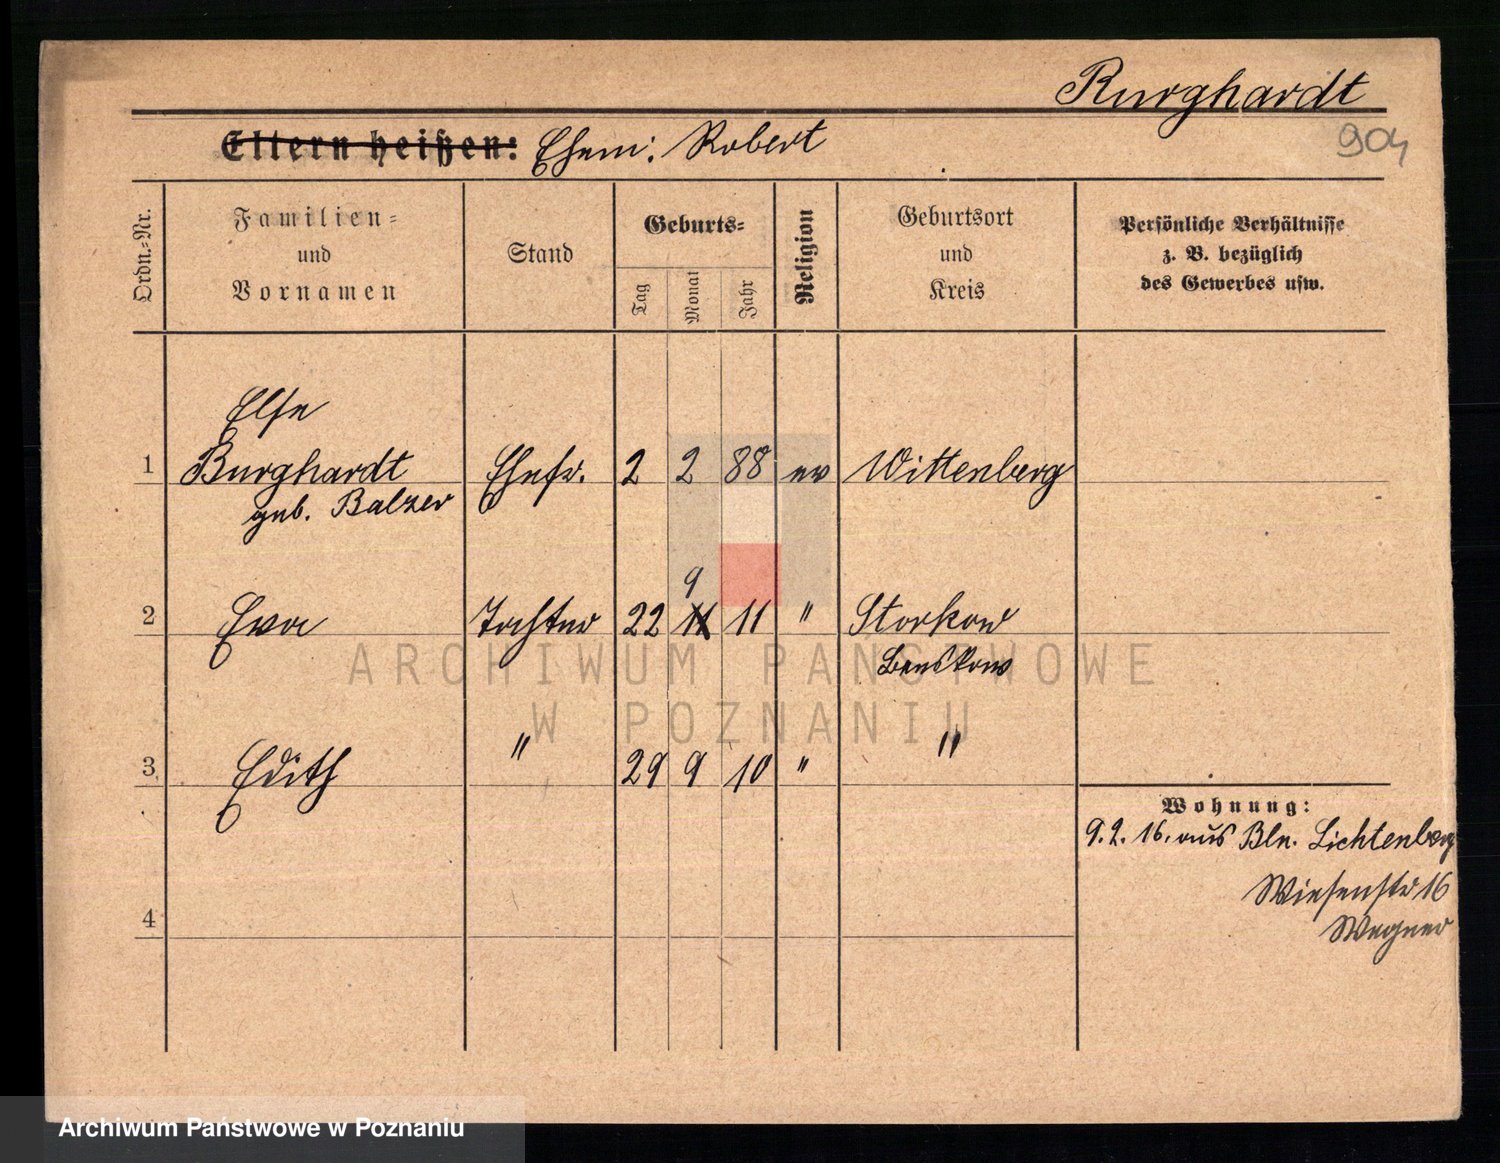 Burghardt
904
Eltern heißen: Ehem: Robert
Ordn.=Nr.
Familien=
und
Vornamen
Stand
Geburts=
Tag
Monat
Jahr
Religion
Geburtsort
und
Kreis
Persönliche Verhältnisse
z. B. bezüglich
des Gewerbes usw.
Else
1 Burghardt Ehefr. 2 2 88 ev Wittenberg
geb. Balzer
9
2 Eva Tochter 22 11 11 " Storkow
Beeskow
3 Edith " 29 9 10 " "
Wohnung:
9.2.16. aus Bln. Lichtenberg
Wiesenstr 16
Wegner
4
ARCHIWUM PAŃSTWOWE
W POZNANIU
Archiwum Państwowe w Poznaniu